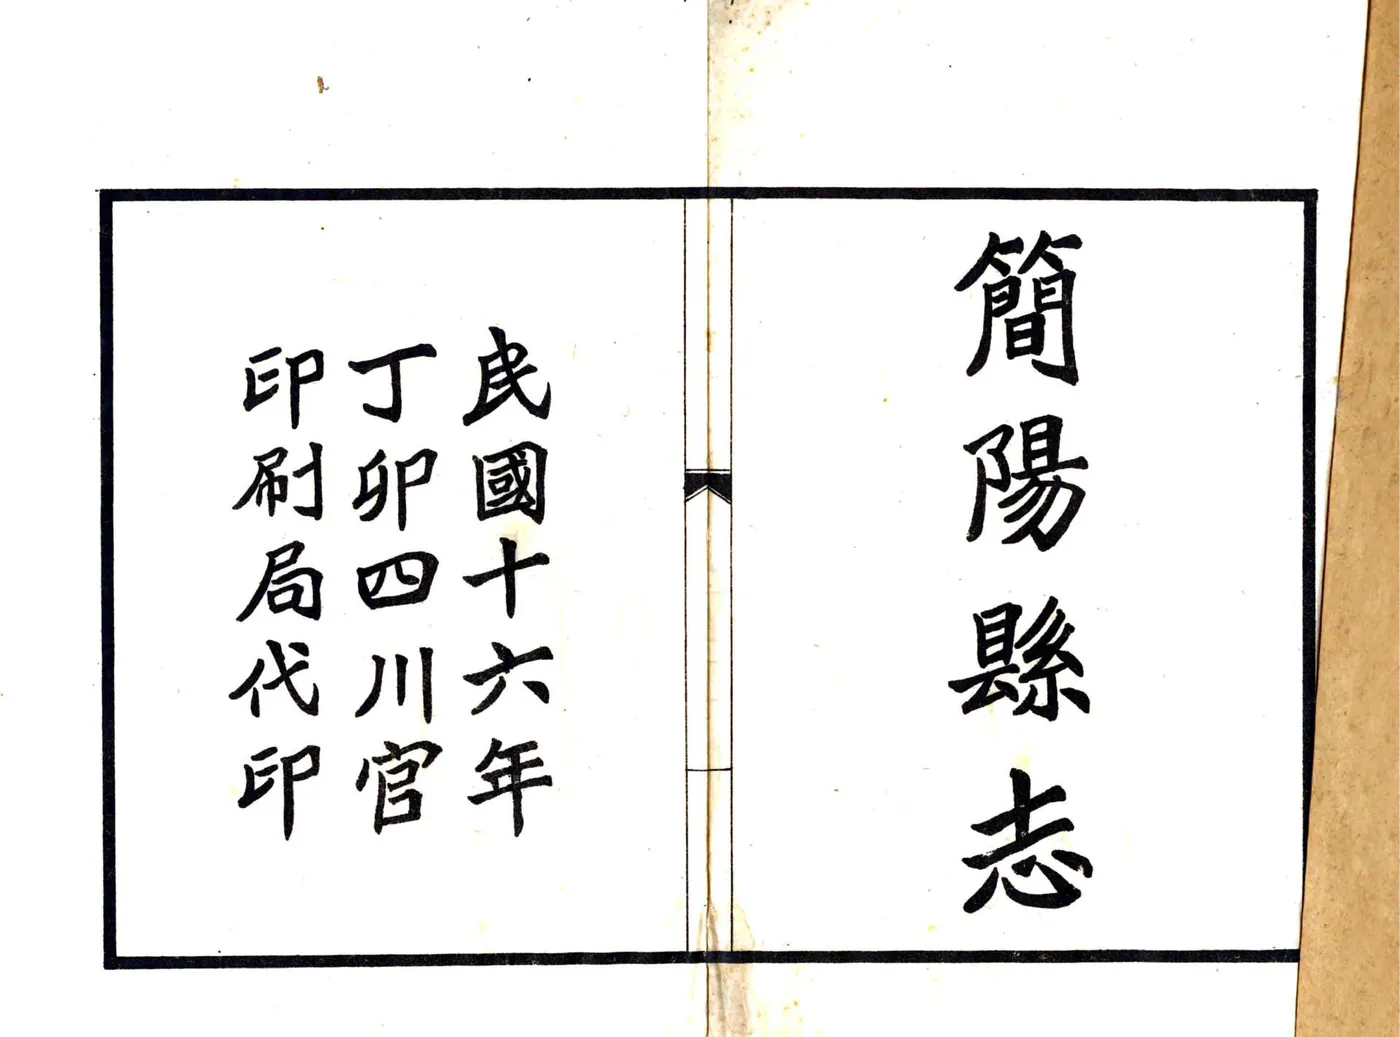 簡陽縣志
民國十六年
丁卯四川官
印刷局代印